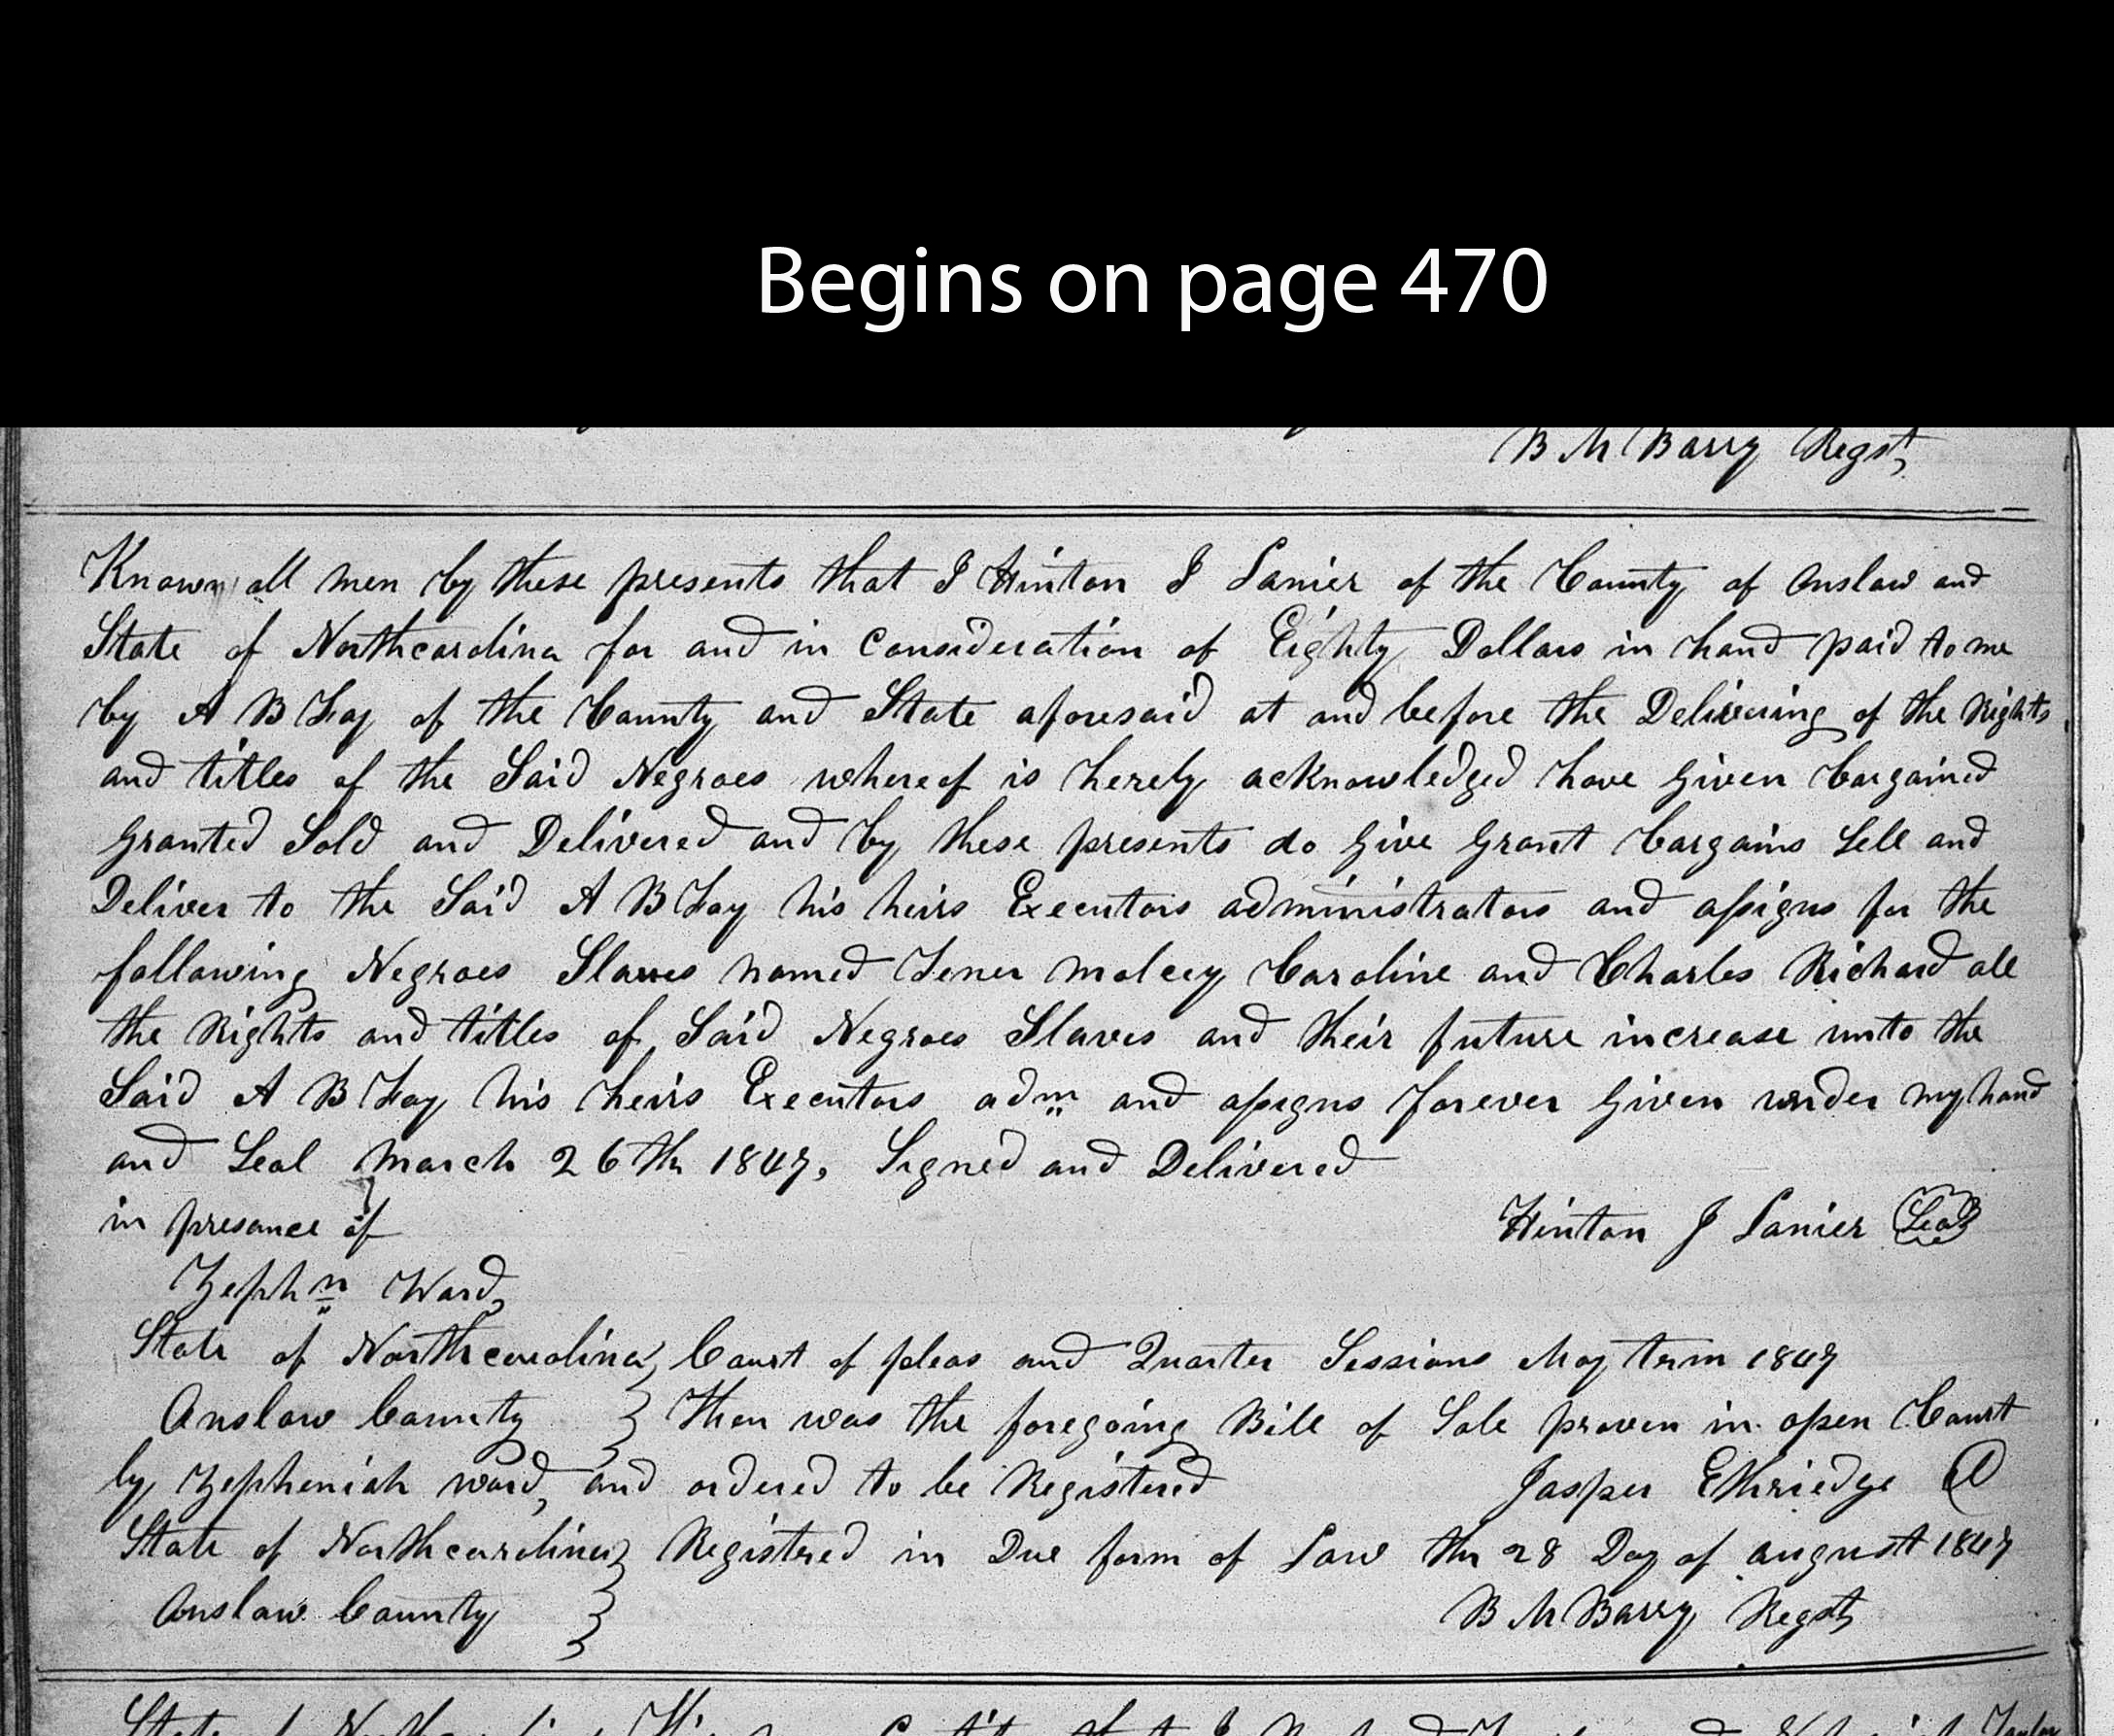 Begins on page 470
B M Barry Regst
Known all men by these presents that I Hinton J Lanier of the County of Onslow and
State of Northcarolina for and in Consideration of Eighty Dollars in hand paid to me
by A B Fay of the County and State aforesaid at and before the Delivering of the Rights
and titles of the Said Negroes whereof is herely acknowledged have Given bargained
Granted Sold and Delivered and by these presents do Give Grant bargains Sell and
Deliver to the Said A B Fay his heirs Executors administrators and assigns for the
following Negroes Slaves named Tener Molcey Caroline and Charles Richard all
the Rights and titles of Said Negroes Slaves and their future increase unto the
Said A B Fay his heirs Executors adm and assigns forever Given under my hand
and Seal March 26th 1847, Signed and Delivered
in presance of
Hinton J Lanier Seal
Zephn Ward
State of Northcarolina Court of pleas and Quarter Sessions May term 1847
Onslow County Then was the foregoing Bill of Sale proven in open Court
by Zepheniah Ward, and ordered to be Registered Jasper Ethriedge C
State of Northcarolina Registered in Due form of Law the 28 Day of august 1847
Onslow County B M Barry Regst
State of